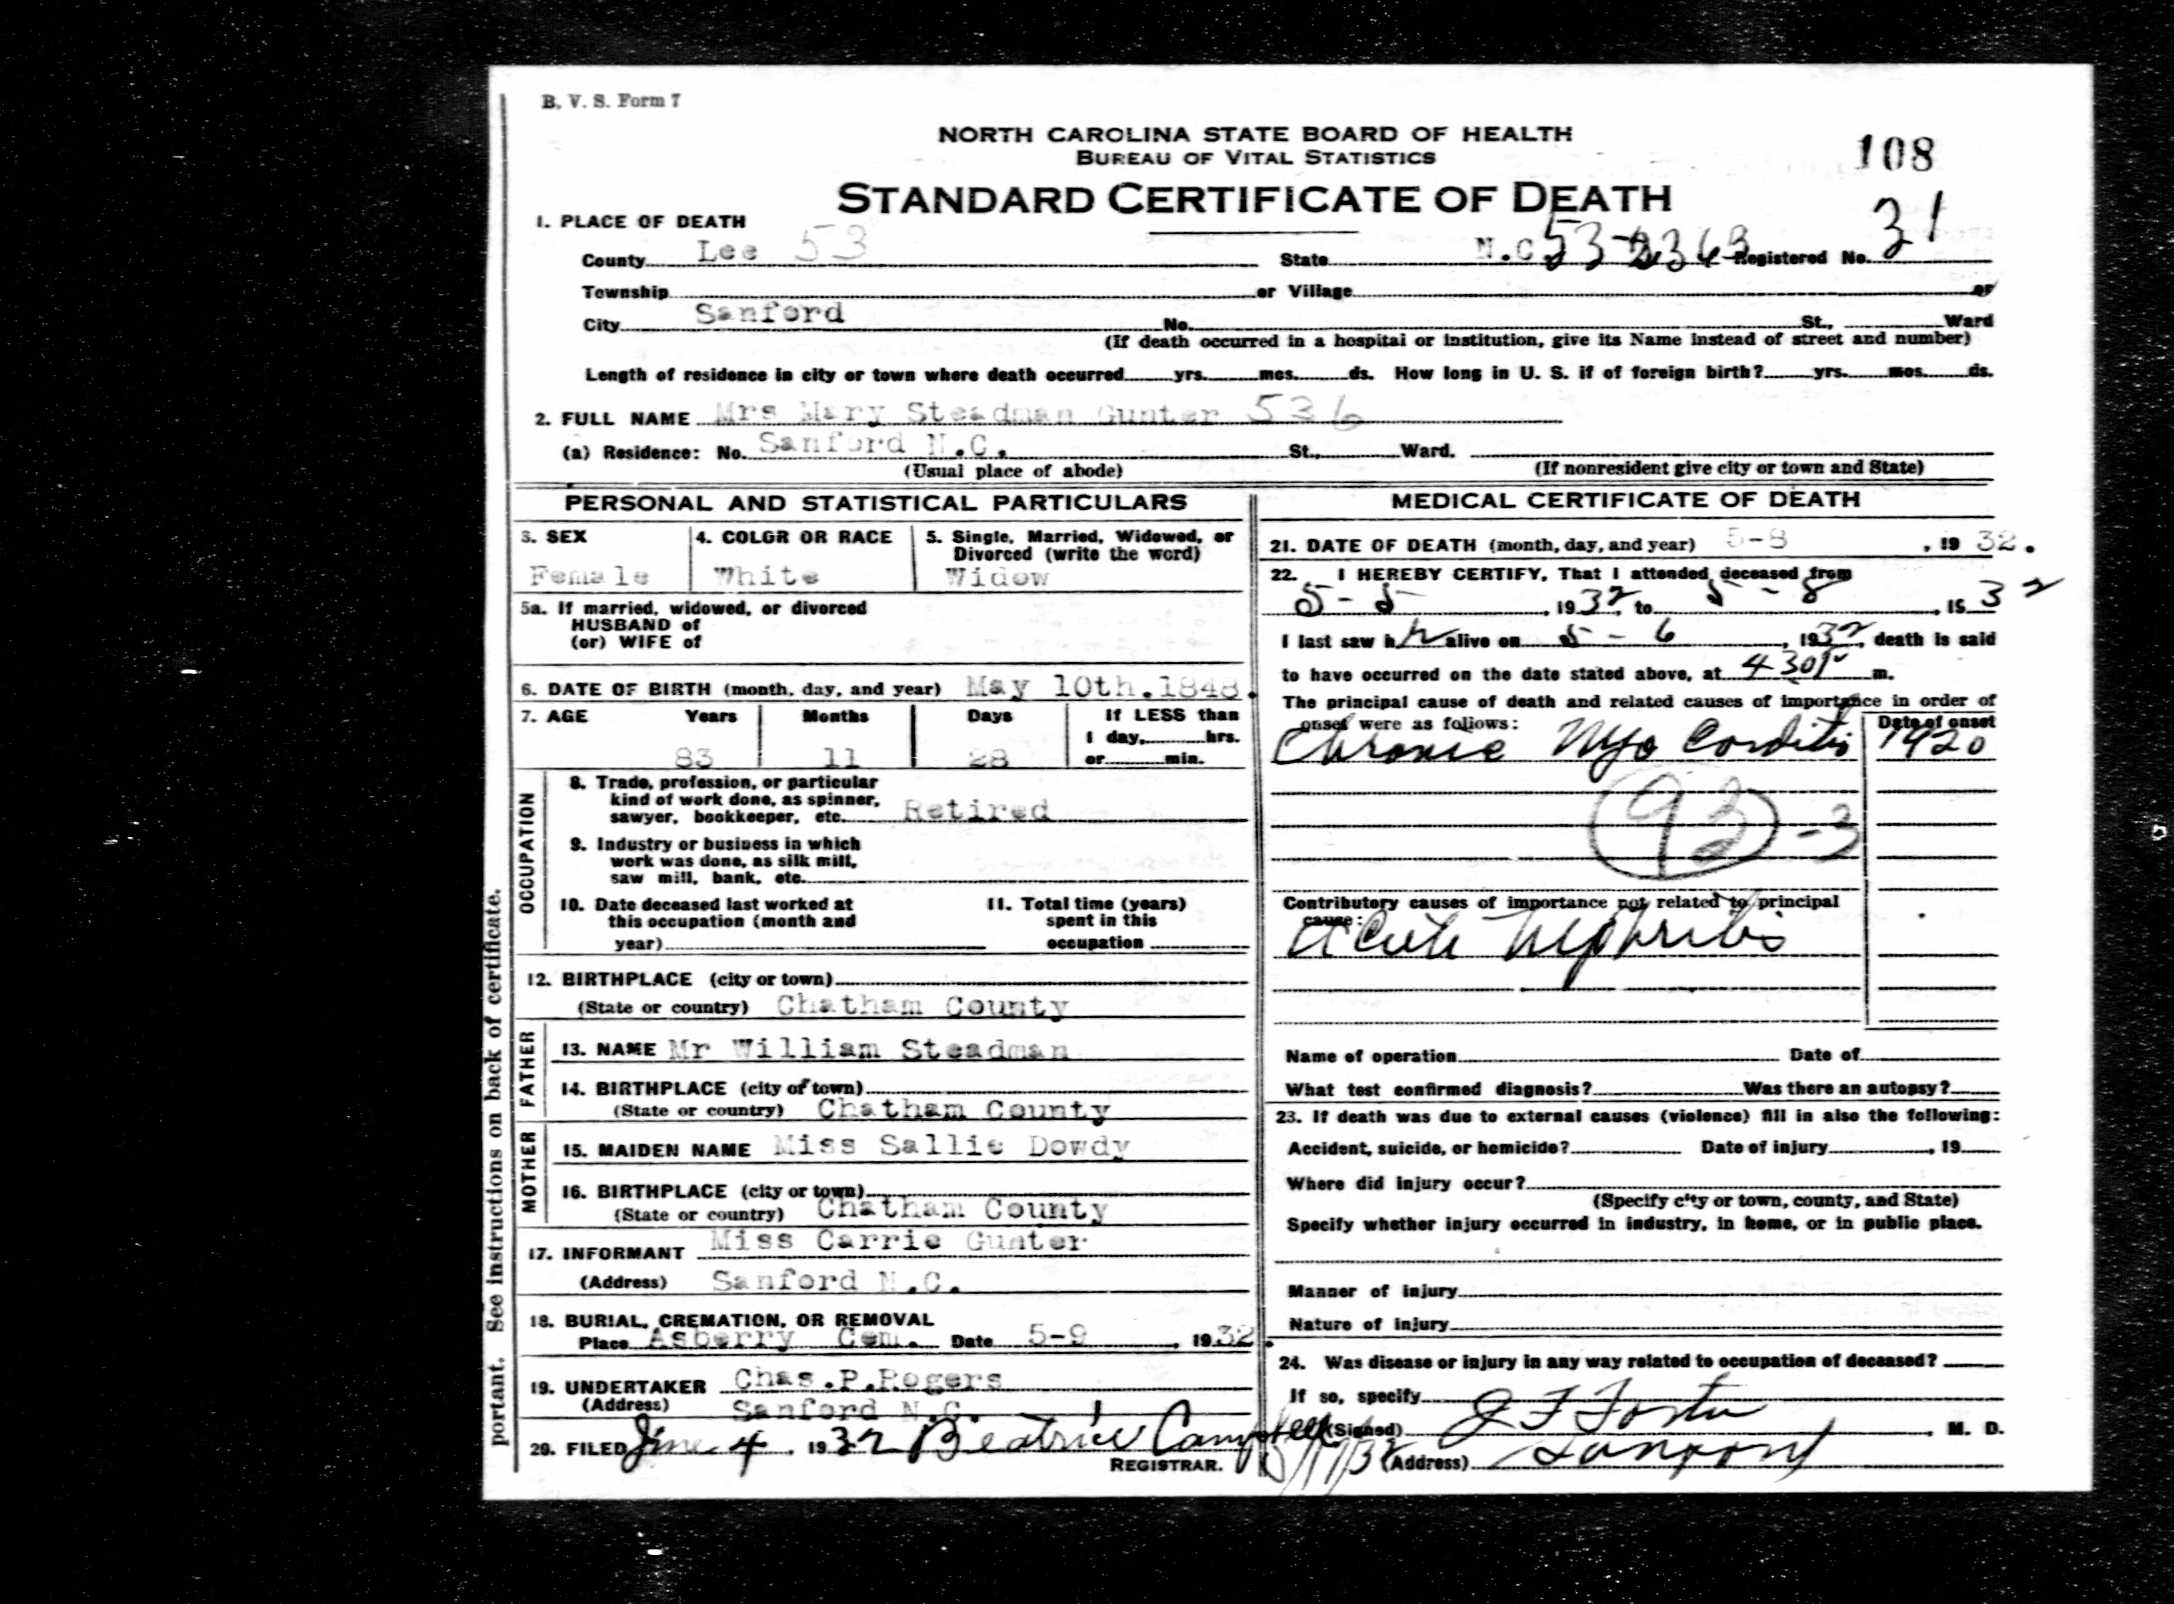 B. V. S. Form 7
NORTH CAROLINA STATE BOARD OF HEALTH
BUREAU OF VITAL STATISTICS
108
STANDARD CERTIFICATE OF DEATH
1. PLACE OF DEATH
County Lee 53 State N.C. 53- Registered No. 31
Township or Village or
City Sanford No. St., Ward
(If death occurred in a hospital or institution, give its Name instead of street and number)
Length of residence in city or town where death occurred yrs. mos. ds. How long in U. S. if of foreign birth? yrs. mos. ds.
2. FULL NAME Mrs Mary Steadman Gunter 536
(a) Residence: No. Sanford N.C. St., Ward.
(Usual place of abode) (If nonresident give city or town and State)
PERSONAL AND STATISTICAL PARTICULARS
3. SEX 4. COLOR OR RACE 5. Single, Married, Widowed, or
Divorced (write the word)
Female White Widow
5a. If married, widowed, or divorced
HUSBAND of
(or) WIFE of
6. DATE OF BIRTH (month, day, and year) May 10th.1848.
7. AGE Years Months Days If LESS than
1 day, hrs.
83 11 28 or min.
OCCUPATION
8. Trade, profession, or particular
kind of work done, as spinner,
sawyer, bookkeeper, etc. Retired
9. Industry or business in which
work was done, as silk mill,
saw mill, bank, etc.
10. Date deceased last worked at 11. Total time (years)
this occupation (month and spent in this
year) occupation
12. BIRTHPLACE (city or town)
(State or country) Chatham County
FATHER
13. NAME Mr William Steadman
14. BIRTHPLACE (city or town)
(State or country) Chatham County
MOTHER
15. MAIDEN NAME Miss Sallie Dowdy
16. BIRTHPLACE (city or town)
(State or country) Chatham County
17. INFORMANT Miss Carrie Gunter
(Address) Sanford N.C.
18. BURIAL, CREMATION, OR REMOVAL
Place Asberry Cem. Date 5-9, 1932.
19. UNDERTAKER Chas.P.Rogers
(Address) Sanford N.C.
20. FILED June 4, 1932 Beatrice Campbell
REGISTRAR.
portant. See instructions on back of certificate.
MEDICAL CERTIFICATE OF DEATH
21. DATE OF DEATH (month, day, and year) 5-8, 1932.
22. I HEREBY CERTIFY, That I attended deceased from
5-5, 1932, to 5-8, 1932
I last saw h alive on 5-6, 1932, death is said
to have occurred on the date stated above, at 430P m.
The principal cause of death and related causes of importance in order of
onset were as follows: Date of onset
Chronic Myo Corditis 1920
93-3
Contributory causes of importance not related to principal
cause:
Acute Nephritis
Name of operation Date of
What test confirmed diagnosis? Was there an autopsy?
23. If death was due to external causes (violence) fill in also the following:
Accident, suicide, or homicide? Date of injury, 19
Where did injury occur?
(Specify city or town, county, and State)
Specify whether injury occurred in industry, in home, or in public place.
Manner of injury
Nature of injury
24. Was disease or injury in any way related to occupation of deceased?
If so, specify
(Signed) J F Foster, M. D.
(Address) Sanford